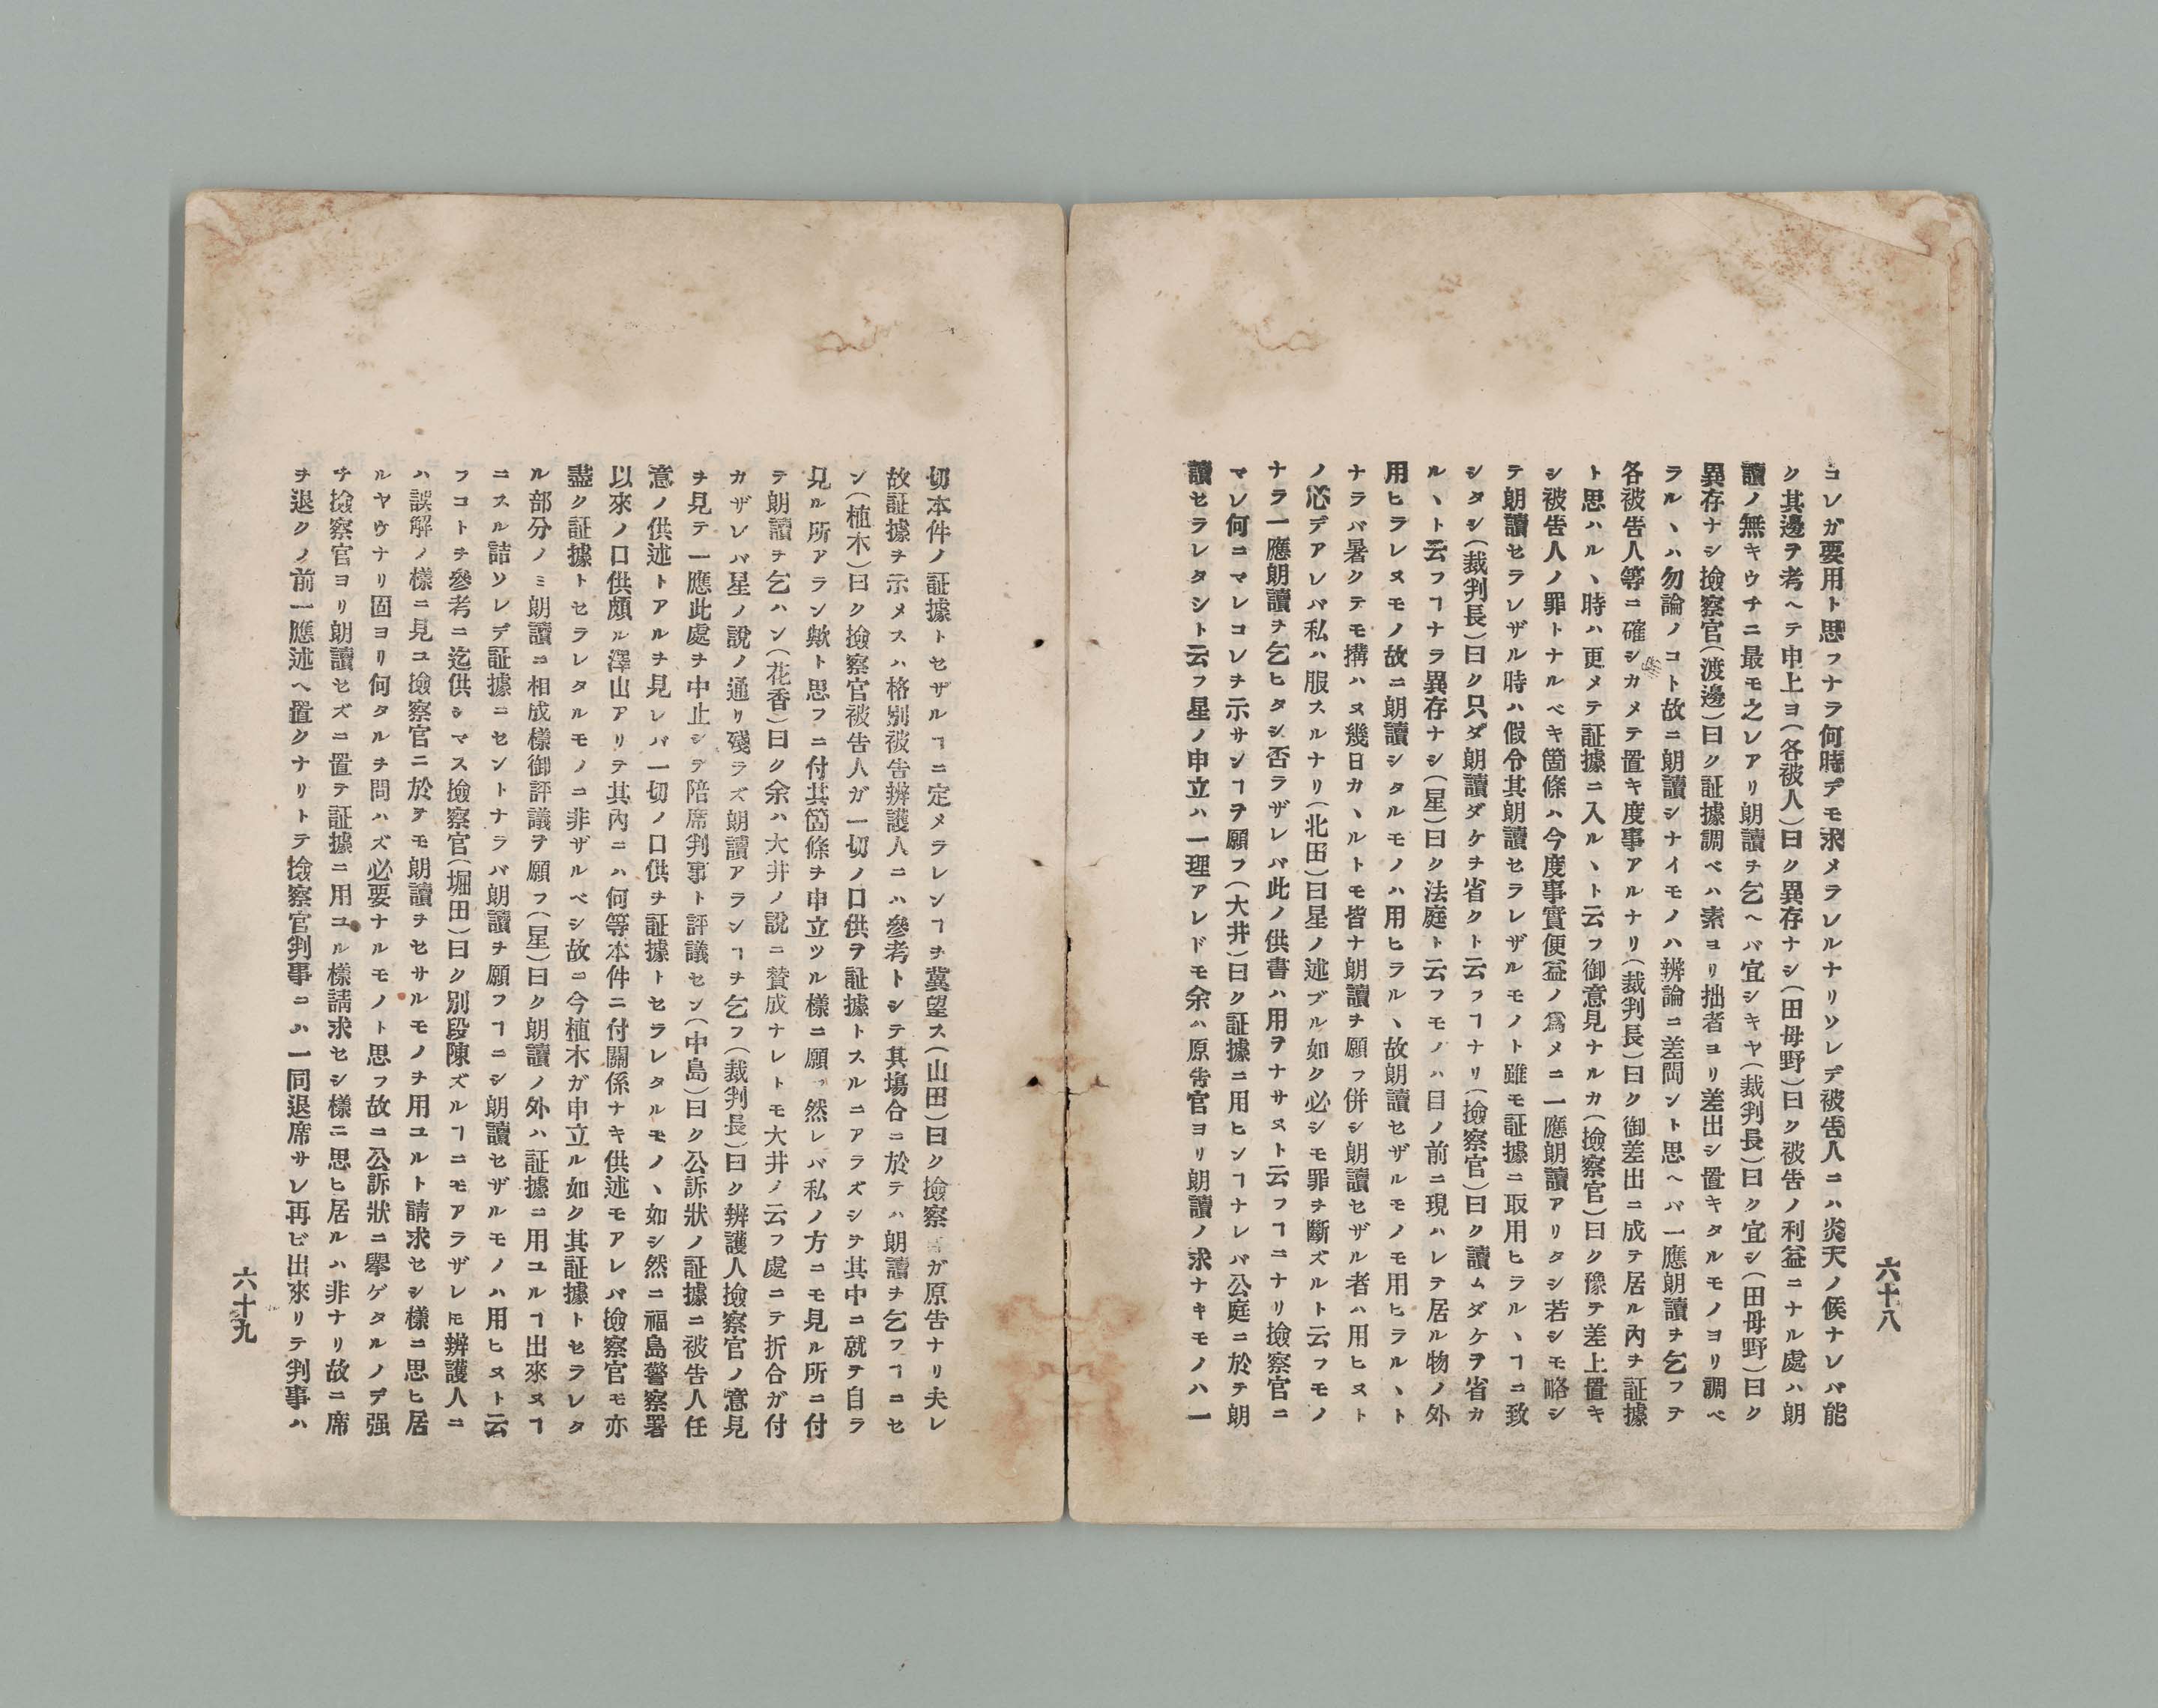 コレガ要用ト思フナラ何時デモ求メラレルナリソレデ被告人ニハ炎天ノ候ナレバ能
ク其邊ヲ考ヘテ申上ヨ(各被人)曰ク異存ナシ(田母野)曰ク被告ノ利益ニナル處ハ朗
讀ノ無キウチニ最モ之レアリ朗讀ヲ乞ヘバ宜シキヤ(裁判長)曰ク宜シ(田母野)曰ク
異存ナシ撿察官(渡邊)曰ク証據調ベハ素ヨリ拙者ヨリ差出シ置キタルモノヨリ調ベ
ラルヽハ勿論ノコト故ニ朗讀シナイモノハ辨論ニ差閊ント思ヘバ一應朗讀ヲ乞フヲ
各被告人等ニ確シカメテ置キ度事アルナリ(裁判長)曰ク御差出ニ成テ居ル內ヲ証據
ト思ハルヽ時ハ更メテ証據ニ入ルヽト云フ御意見ナルカ(撿察官)曰ク豫テ差上置キ
シ被告人ノ罪トナルベキ箇條ハ今度事實便益ノ爲メニ一應朗讀アリタシ若シモ略シ
テ朗讀セラレザル時ハ假令其朗讀セラレザルモノト雖モ証據ニ取用ヒラルヽヿニ致
シタシ(裁判長)曰ク只ダ朗讀ダケヲ省クト云フヿナリ(撿察官)曰ク讀ムダケヲ省カ
ルヽト云フヿナラ異存ナシ(星)曰ク法庭ト云フモノハ目ノ前ニ現ハレテ居ル物ノ外
用ヒラレヌモノ故ニ朗讀シタルモノハ用ヒラルヽ故朗讀セザルモノモ用ヒラルヽト
ナラバ暑クテモ搆ハヌ幾日カヽルトモ皆ナ朗讀ヲ願フ併シ朗讀セザル者ハ用ヒヌト
ノ必デアレバ私ハ服スルナリ(北田)曰星ノ述ブル如ク必シモ罪ヲ斷ズルト云フモノ
ナラ一應朗讀ヲ乞ヒタシ否ラザレバ此ノ供書ハ用ヲナサヌト云フヿニナリ撿察官ニ
マレ何ニマレコレヲ示サンヿヲ願フ(大井)曰ク証據ニ用ヒンヿナレバ公庭ニ於テ朗
讀セラレタシト云フ星ノ申立ハ一理アレドモ余ハ原告官ヨリ朗讀ノ求ナキモノハ一
六十八
切本件ノ証據トセザルヿニ定メラレンヿヲ冀望ス(山田)曰ク撿察ガ原告ナリ夫レ
故証據ヲ示メスハ格別被告辨護人ニハ參考トシテ其塲合ニ於テハ朗讀ヲ乞フヿニセ
ン(植木)曰ク撿察官被告人ガ一切ノ口供ヲ証據トスルニアラズシテ其中ニ就テ自ラ
見ル所アラン歟ト思フニ付其箇條ヲ申立ツル樣ニ願フ然レバ私ノ方ニモ見ル所ニ付
テ朗讀ヲ乞ハン(花香)曰ク余ハ大井ノ說ニ賛成ナレトモ大井ノ云フ處ニテ折合ガ付
カザレバ星ノ說ノ通リ殘ラズ朗讀アランヿヲ乞フ(裁判長)曰ク辨護人撿察官ノ意見
ヲ見テ一應此處ヲ中止シテ陪席判事ト評議セン(中島)曰ク公訴狀ノ証據ニ被告人任
意ノ供述トアルヲ見レバ一切ノ口供ヲ証據トセラレタルモノヽ如シ然ニ福島警察署
以來ノ口供頗ル澤山アリテ其內ニハ何等本件ニ付關係ナキ供述モアレバ撿察官モ亦
盡ク証據トセラレタルモノニ非ザルベシ故ニ今植木ガ申立ル如ク其証據トセラレタ
ル部分ノミ朗讀ニ相成樣御評議ヲ願フ(星)曰ク朗讀ノ外ハ証據ニ用ユルヿ出來ヌヿ
ニスル詰ソレデ証據ニセントナラバ朗讀ヲ願フヿニシ朗讀セザルモノハ用ヒヌト云
フコトヲ參考ニ迄供シマス撿察官(堀田)曰ク別段陳ズルヿニモアラザレ𪜈辨護人ニ
ハ誤解ノ樣ニ見ユ撿察官ニ於ヲモ朗讀ヲセサルモノヲ用ユルト請求セシ樣ニ思ヒ居
ルヤウナリ固ヨリ何タルヲ問ハズ必要ナルモノト思フ故ニ公訴狀ニ擧ゲタルノデ强
チ撿察官ヨリ朗讀セズニ置テ証據ニ用ユル樣請求セシ樣ニ思ヒ居ルハ非ナリ故ニ席
ヲ退クノ前一應述ヘ置クナリトテ撿察官判事ニハ一同退席サレ再ビ出來リテ判事ハ
六十九